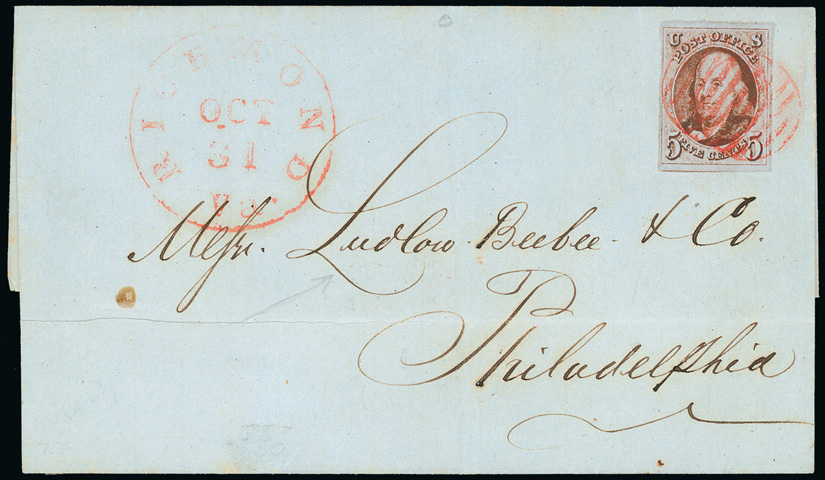 RICHMOND
OCT
31
Va.
U S
POST OFFICE
FIVE CENTS
5 5
Messrs. Ludlow Beebee & Co.
Philadelphia